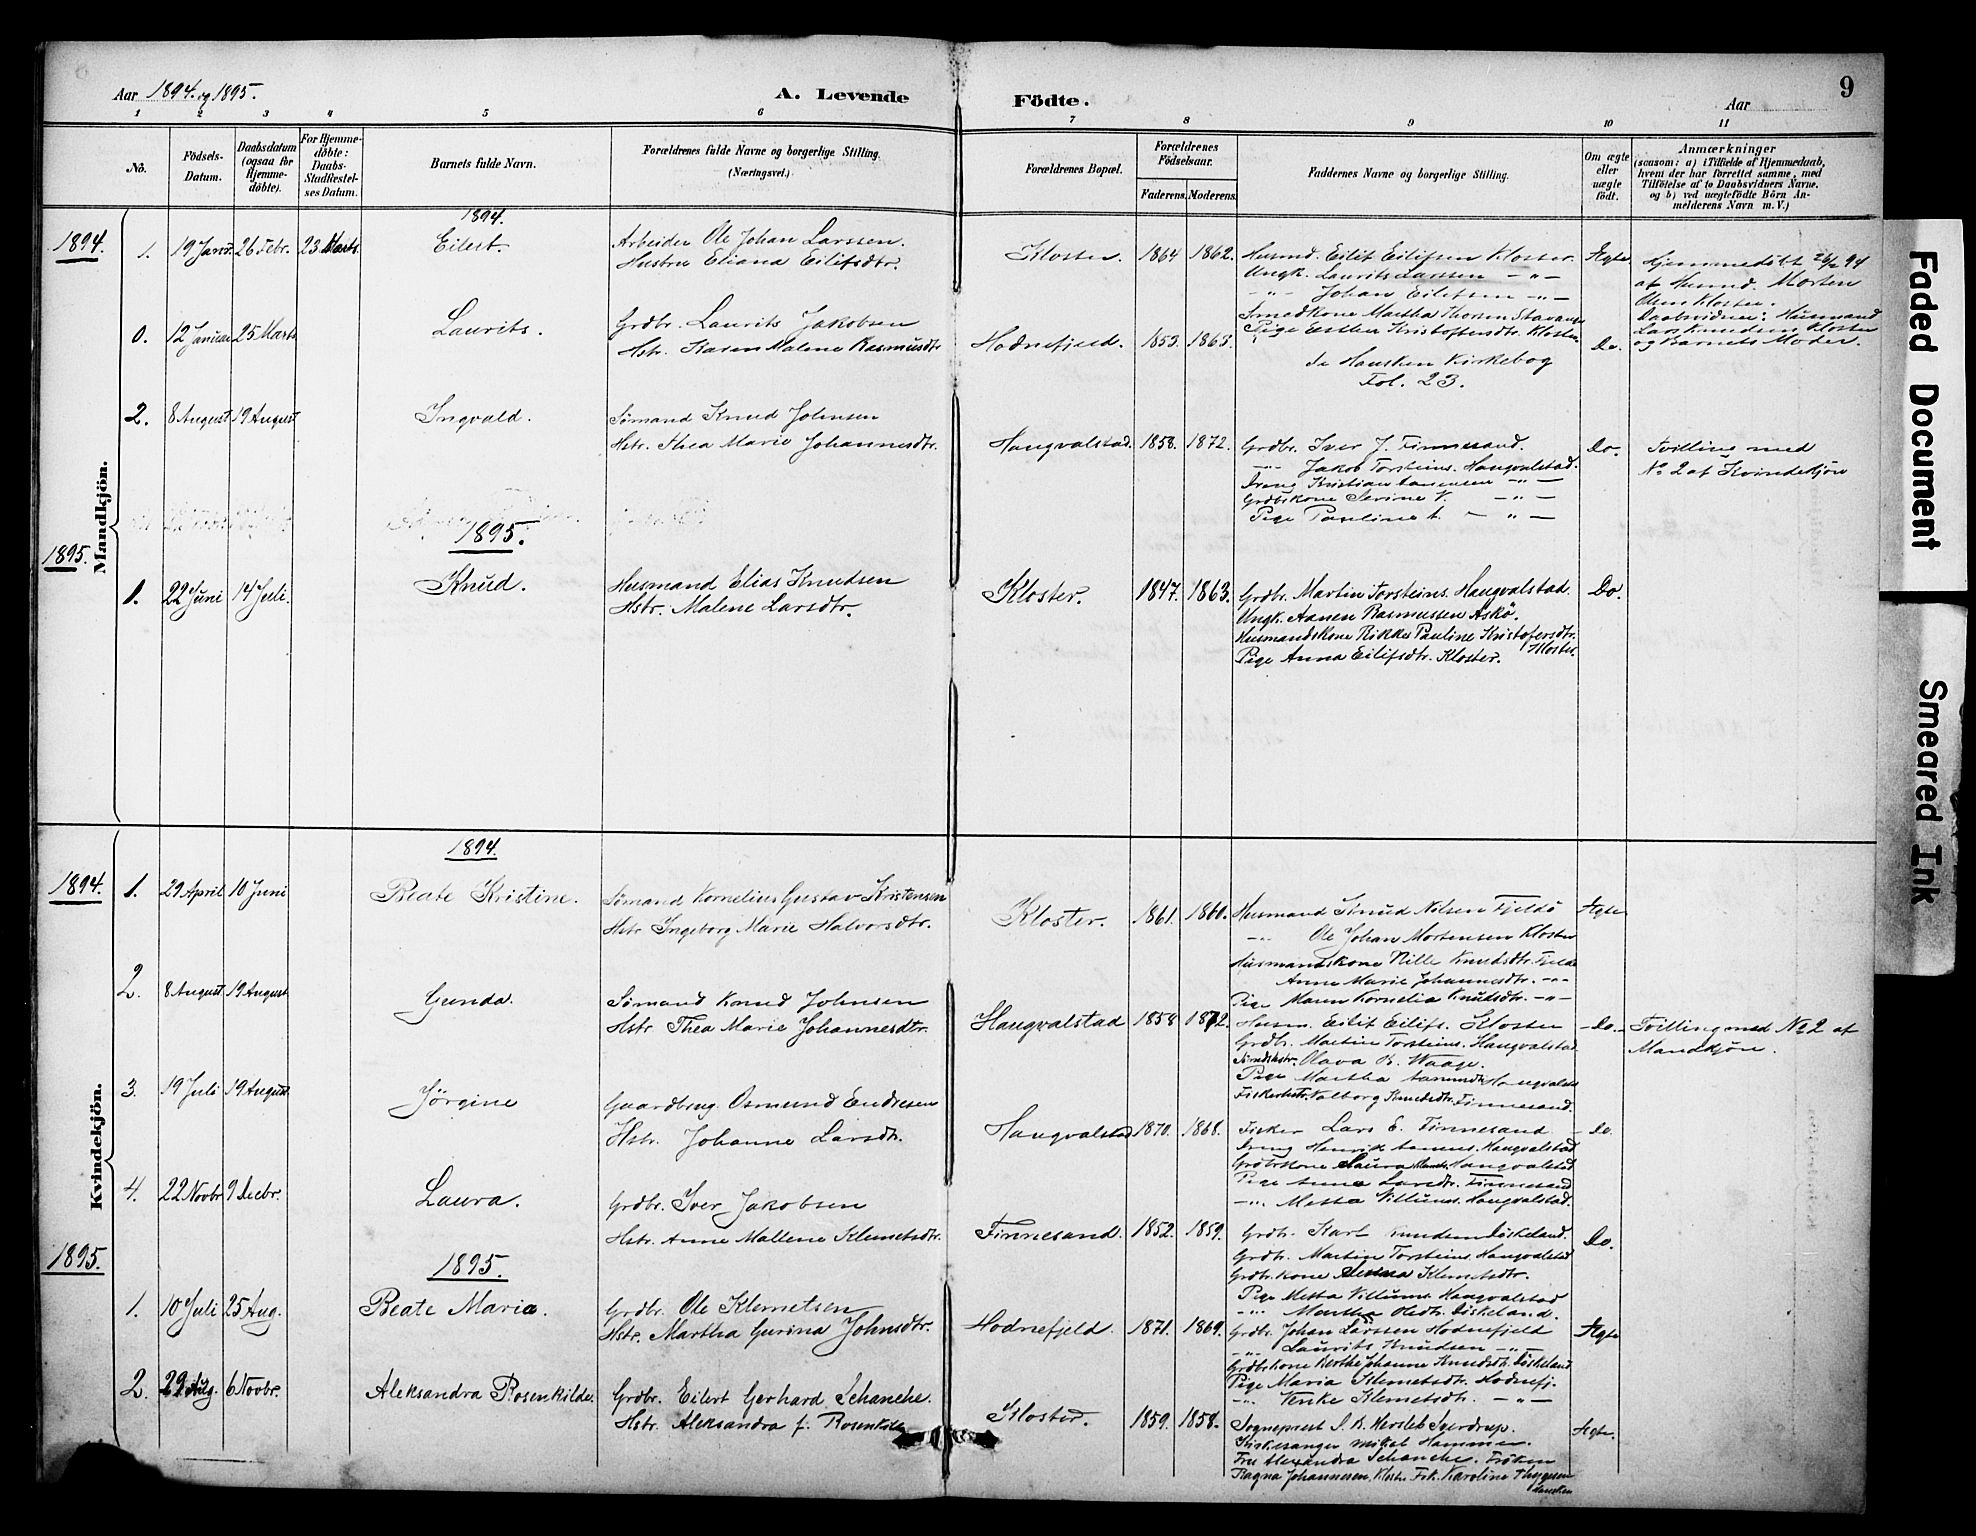 Aar 1894. og 1895.
A. Levende Födte.
Aar
9
1 2 3 4 5 6 7 8 9 10 11
No.
Födsels-Datum.
Daabsdatum (ogsaa for Hjemme-döbte).
For Hjemme-döbte: Daabs-Stadfæstel-ses Datum.
Barnets fulde Navn.
Forældrenes fulde Navne og borgerlige Stilling. (Næringsvei.)
Forældrenes Bopæl.
Forældrenes Födselsaar.
Faderens. Moderens.
Faddernes Navne og borgerlige Stilling.
Om ægte eller uægte födt.
Anmærkninger
(saasom: a) i Tilfælde af Hjemmedaab, hvem der har forrettet samme, med Tilföielse af to Daabsvidners Navne. og b) ved uægtefödte Börn An-melderens Navn m. V.)
Mandkjön.
1894.
1894.
1. 19 Januar 26 Febr. 23 Marts. Eilert. Arbeider Ole Johan Larssen.
Hustru Eliana Eilifsdtr.
Kloster. 1864 1862. Husmd. Eilif Eilifsen Kloster. Ægte
Ungk. Laurits Larssen -"-
-"- Johan Eilifsen -"-
Smedkone Martha Thorsen Stavanger
Pige Esther Kristoffersdtr. Kloster
Hjemmedöbt 26/2 94
af Husmd. Morten
Olsen Kloster.
Daabsvidner: Husmand
Lars Knudsen Kloster
og Barnets Moder.
0. 12 Januar 25 Marts Laurits. Grdbr. Laurits Jakobsen
Hstr. Karen Malene Rasmusdtr
Hodnefjeld. 1853. 1863. Do.
Se Hausken Kirkebog
Fol. 23.
2. 8 August 19 August Ingvald. Sömand Knud Johnsen
Hstr. Thea Marie Johannesdtr.
Haugvalstad. 1858. 1872. Grdbr. Iver J. Finnesand. Do.
-"- Jakob Torsteins. Haugvalstad.
Dreng Kristian -"-
Grdbrkone Serine V. -"-
Pige Pauline A. -"-
Tvilling med
No 2 af Kvindekjön
1895.
1895.
1. 22 Juni 14 Juli. Knud. Husmand Elias Knudsen
Hstr. Malene Larsdtr.
Kloster. 1847. 1863. Grdbr. Martin Torsteins. Haugvalstad. Do.
Ungk. Aanen Rasmussen Askö.
Husmandskone Rikke Pauline Kristofersdtr. Kloster.
Pige Anna Eilifsdtr. Kloster.
Kvindekjön.
1894.
1894.
1. 29 April 10 Juni Beate Kristine. Sömand Kornelius Gustav Kristensen
Hstr Ingeborg Marie Halvorsdtr.
Kloster. 1861. 1860. Husmand Knud Nilsen Fjeldö Ægte
-"- Ole Johan Mortensen Kloster
Husmandskone Nille Knudsdtr. Fjeldö
Anne Marie Johannesdtr. -"-
Pige Maren Kornelia Knudsdtr. -"-
2. 8 August 19 August Gunda. Sömand Knud Johnsen
Hstr Thea Marie Johannesdtr.
Haugvalstad 1858 1872. Husm. Eilif Eilifs. Kloster -Do.-
Grdbr. Martin Torsteins. Haugvalstad
Olava B. Waage.
Pige Martha Haugvalstad
Valborg Knudsdtr. Finnesand.
Tvilling med No 2 af
Mandkjön.
3. 19 Juli 19 August Jörgine Gaardbrug. Osmund Endresen
Hstr. Johanne Larsdtr.
Haugvalstad 1870. 1868. Fisker Lars E. Finnesand -Do.
Dreng Henrik Haugvalstad
Grdbrkone Laura Haugvalstad
Pige Anna Larsdtr. Finnesand
-"- Metta Villums. Haugvalstad.
4. 22 Novbr 9 Decbr. Laura. Grdbr. Iver Jakobsen
Hstr. Anne Mallene Klemetsdtr.
Finnesand. 1852. 1859. Grdbr. Karl Knudsen Diskeland. Do.
Grdbr. Martin Torsteins Haugvalstad
Grdbr.kone Klemetsdtr.
Pige Metta Villums. Haugvalstad
-"- Martha Olsdtr. Diskeland.
1895.
1895.
1. 10 Juli 25 Aug. Beate Maria. Grdbr. Ole Klemetsen
Hstr. Martha Gurina Johnsdtr.
Hodnefjeld. 1871. 1869. Grdbr. Johan Larssen Hodnefjeld Ægte
-"- Laurits Knudsen -"-
Grdbrkone Berthe Johanne Knudsdtr. Diskeland
Pige Maria Klemetsdtr. Hodnefj.
-"- Venke Klemetsdtr. -"-
2. 29 Aug. 6 Novbr. Aleksandra Rosenkilde. Grdbr. Eilert Gerhard Schanche.
Hstr. Aleksandra f. Rosenkilde
Kloster. 1859. 1858. Sogneprest J. B. Hersleb Sverdrup. Ægte.
Kirkesanger Mikal Hammer.
Fru Alexandra Schanche. Fröken
Ragna Johannesen, Kloster Frk. Karoline Thygesen
Hausken
Faded Document
Smeared Ink